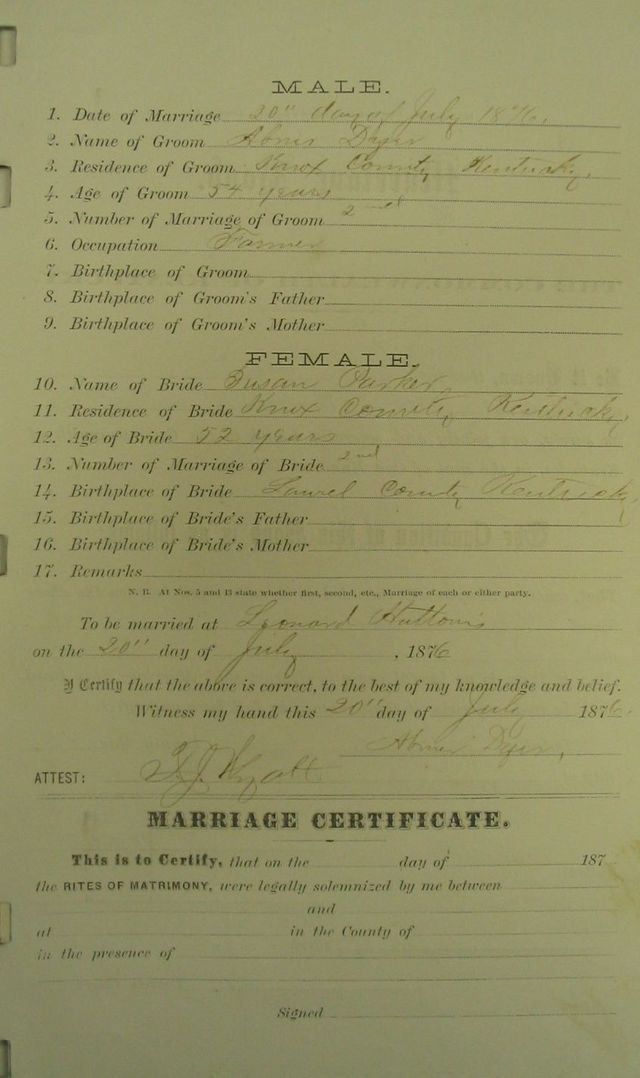 MALE.
1. Date of Marriage 20" day of July 1876.
2. Name of Groom Abner Dyer
3. Residence of Groom Knox County Kentucky,
4. Age of Groom 54 years
5. Number of Marriage of Groom 2nd
6. Occupation Farmer
7. Birthplace of Groom
8. Birthplace of Groom's Father
9. Birthplace of Groom's Mother
FEMALE.
10. Name of Bride Susan Parker,
11. Residence of Bride Knox County, Kentucky,
12. Age of Bride 52 years
13. Number of Marriage of Bride 2nd
14. Birthplace of Bride Laurel County Kentucky,
15. Birthplace of Bride's Father
16. Birthplace of Bride's Mother
17. Remarks
N. B. At Nos. 5 and 13 state whether first, second, etc., Marriage of each or either party.
To be married at Leonard
on the 20" day of July, 1876
I Certify that the above is correct, to the best of my knowledge and belief.
Witness my hand this 20" day of July 1876.
Abner Dyer,
ATTEST: Wyatt
MARRIAGE CERTIFICATE.
This is to Certify, that on the day of 187
the RITES OF MATRIMONY, were legally solemnized by me between
and
at in the County of
in the presence of
Signed